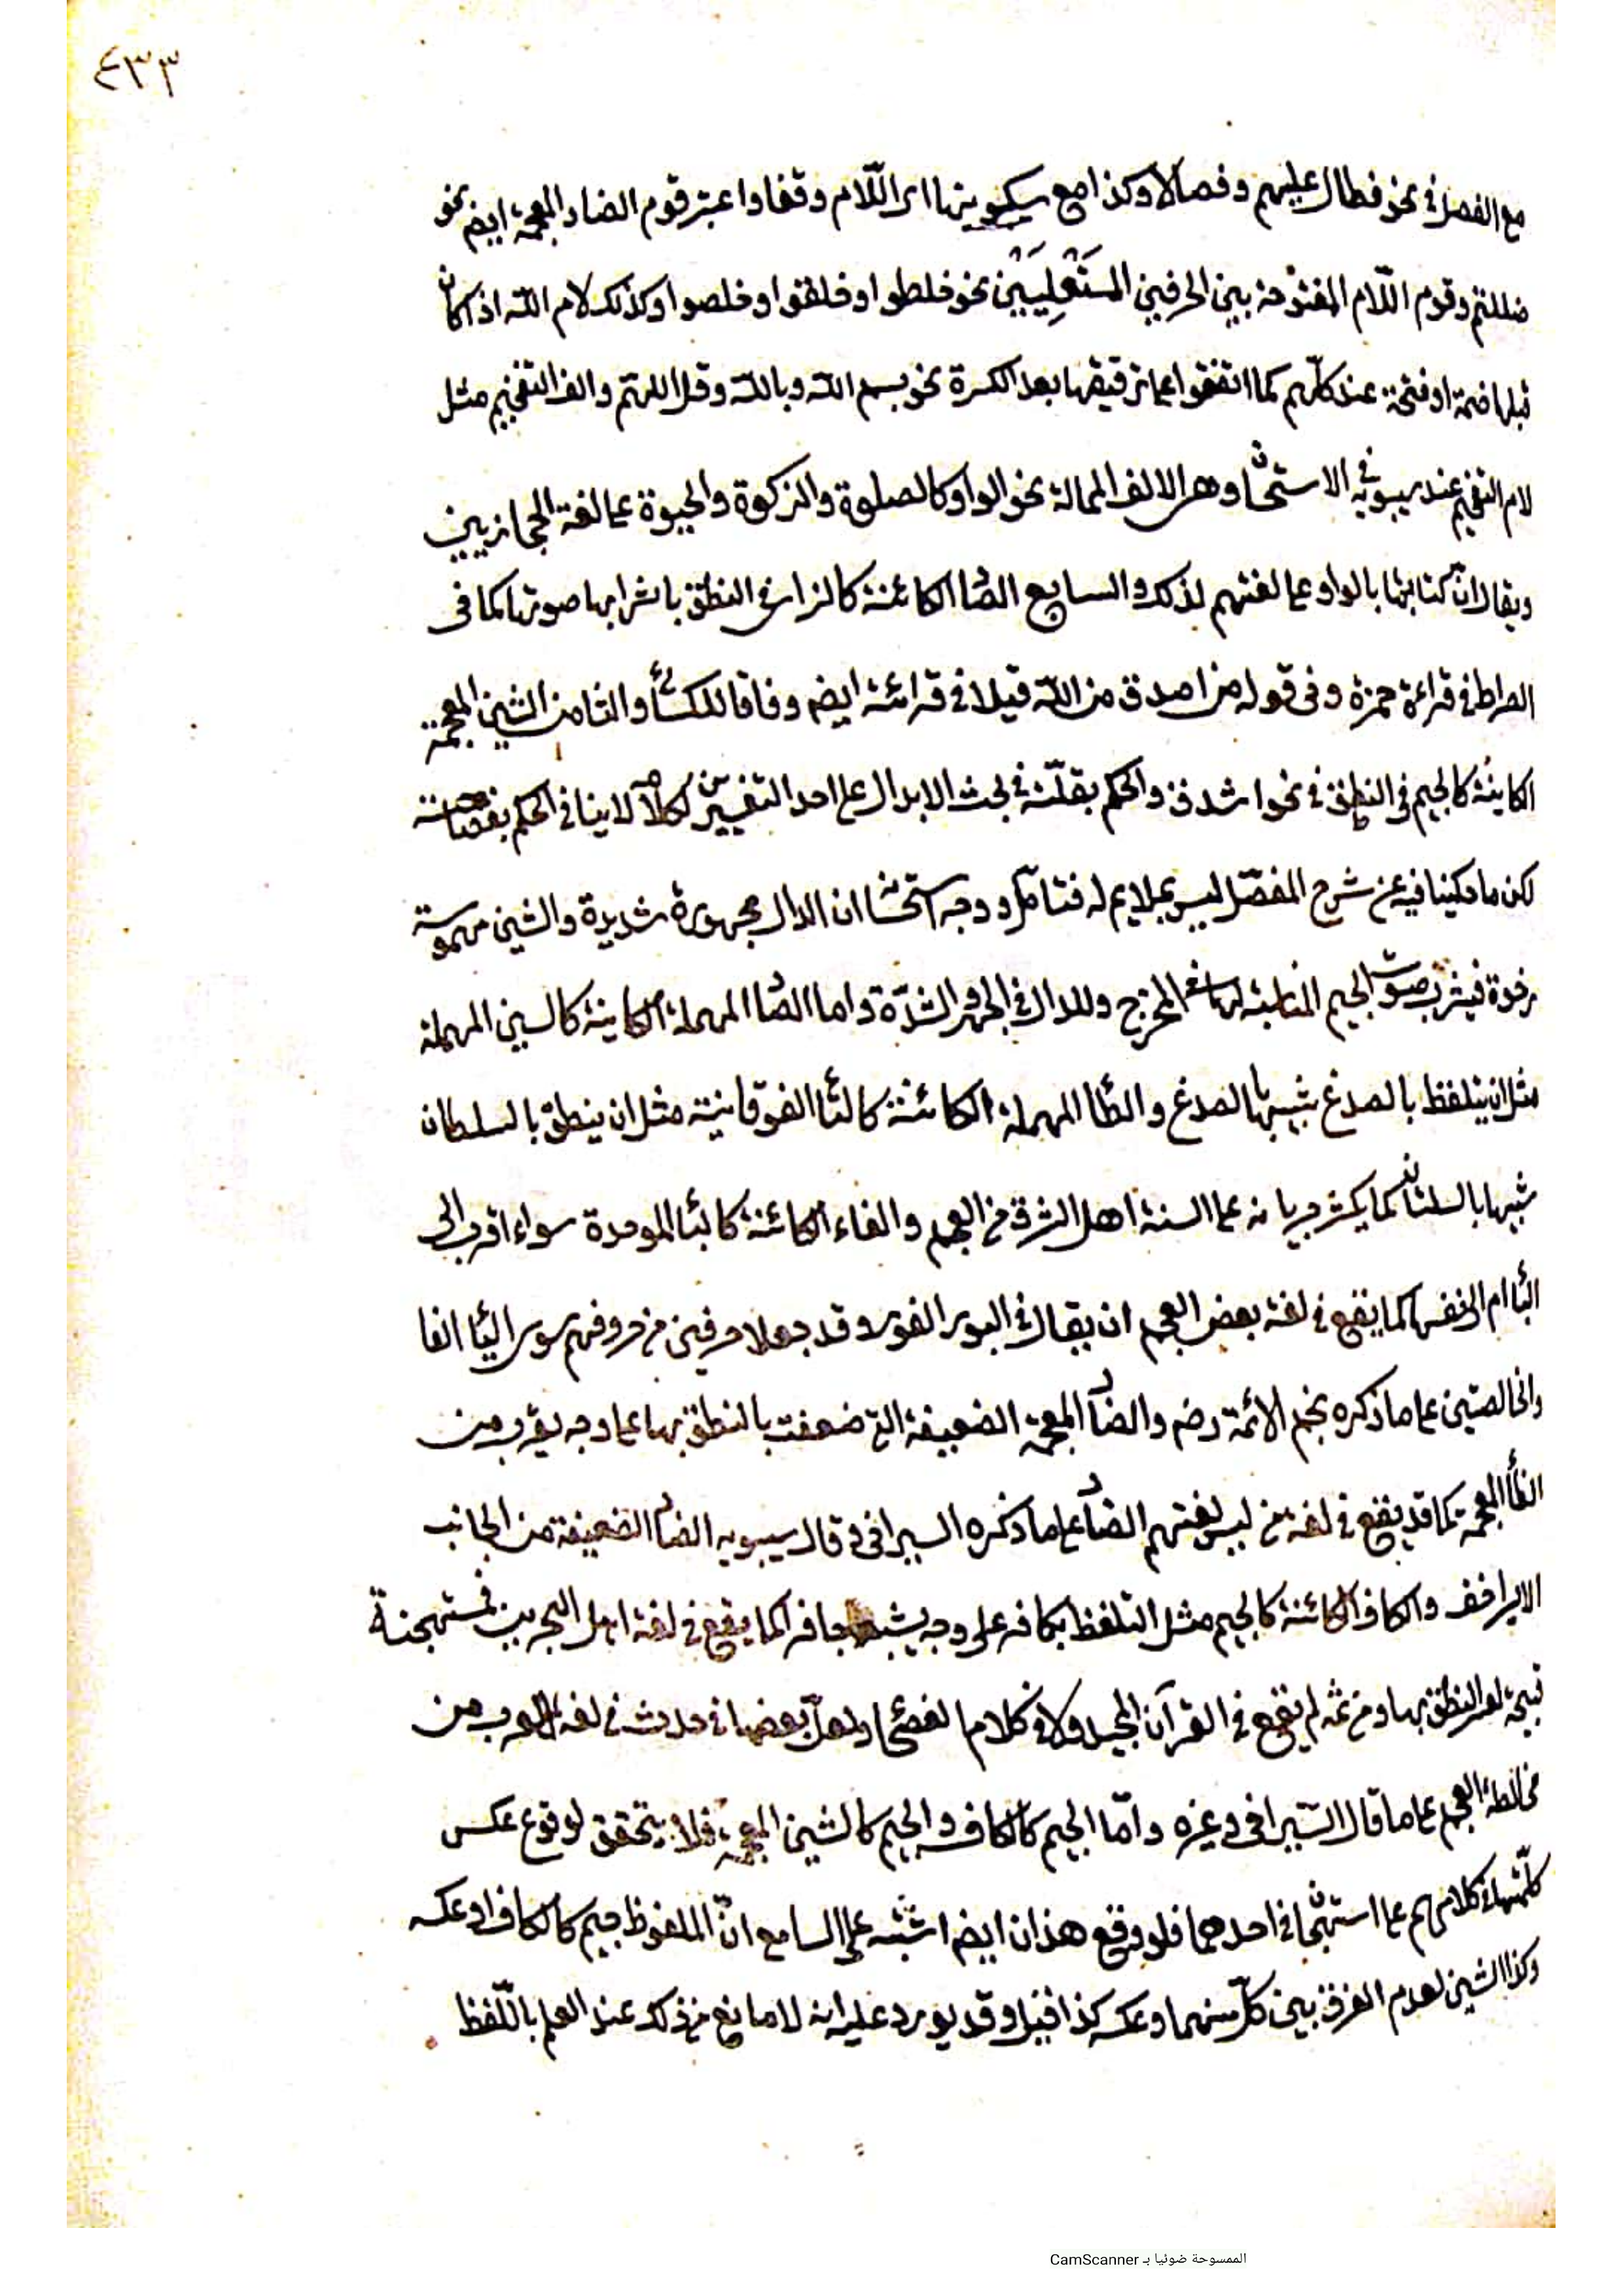 ٤٣٣
مع الفصل في نحو فطال عليهم وفصالا وكذا مع سكونها اى اللّام وقفا واعتبر قوم الضاد المعجمة ايضم نحو
ضللتم وقوم اللّام المفتوحة بين الحرفين المستَعْلِيَيْن نحو خلطوا وخلقوا وخلصوا وكذلك لام اللّه اذا كان
قبلها ضمة او فتحة عند كلّهم كما اتفقوا على ترقيقها بعد الكسرة نحو بسم اللّه وباللّه وقل اللهمّ والف التفخيم مثل
لام التفخيم عند سيبويه في الاستحسان وهى الالف الممالة نحو الواو كالصلوة والزكوة والحيوة على لغة الحجازيين
ويقال انّ كتابتها بالواو على لغتهم لذلك والسابع الصاد الكائنة كالزاى في النطق باشرابها صوتها كما فى
الصراط في قراءة حمزة وفى قوله من اصدق من اللّه قيلا في قرائته ايضم وفاقا للكسائى والثامن الشين المعجمة
الكاينة كالجيم في النطق في نحو اشدق والحكم بقلّته في بحث الابدال على احد التفسيرين لكلامه لا ينافى الحكم بفصاحته
لكن ما حكينا فيه عن شرح المفصّل ليس بملايم له فتأمّل ووجه استحسانه ان الدال مجهورة شديدة والشين مهموسة
رخوة فيشرب صوت الجيم المناسبة لها في المخرج وللدال في الجهر والشدّة واما الصاد المهملة الكاينة كالسين المهملة
مثل ان يتلفظ بالصدغ شبيها بالسدغ والطاء المهملة الكائنة كالتاء الفوقانية مثل ان ينطق بالسلطان
شبيها بالسلتان كما يكثر جريانه على السنة اهل الشرق من العجم والفاء الكائنة كالباء الموحدة سواء اقرب الى
الباء ام الى نفسها كما يقع في لغة بعض العجم ان يقال في البور الفور وقد جعلا حرفين من حروفهم سوى الباء والفا
والخالصتين على ما ذكره نجم الائمة رضم والضاد المعجمة الضعيفة التى ضعفت بالنطق بها على وجه يقرب من
الظاء المعجمة كما قد يقع في لغة من ليس لغتهم الضاد على ما ذكره السيرافى وقال سيبويه الضاد الضعيفة من الجانب
الايسر اخف والكاف الكائنة كالجيم مثل التلفظ بكافر على وجه يشبه جافر كما يقع في لغة اهل البحرين فمستهجنة
قبيحة النطق بها ومن ثمه لم يقع في القرآن المجيد ولا في كلام الفصحاء ولعلّ بعضها حدث في لغة العرب من
مخالطة العجم على ما قال السّيرافى وغيره وامّا الجيم كالكاف والجيم كالشين المعجمة فلا يتحقق لوقوع عكس
كلّ منهما في كلامهم على استهجان احدهما فلو وقع هذان ايضم اشتبه على السامع انّ الملفوظ جيم كالكاف او عكسه
وكذا الشين لعدم الفرق بين كلّ منهما وعكسه كذا قيل وقد يورد عليه انه لا مانع من ذلك عند العلم باللّفظ
الممسوحة ضوئيا بـ CamScanner